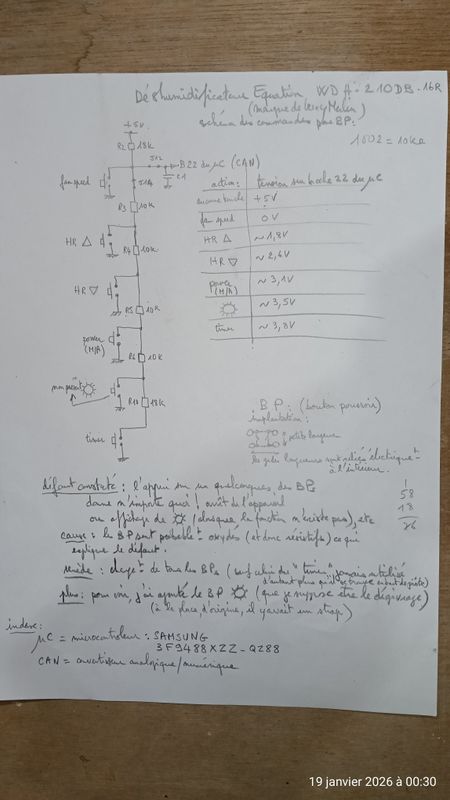 Déshumidificateur Equation WDH-210DB-16R
(marque de Leroy Merlin)
schéma des commandes par BP:
1002 = 10kΩ
+5V
R2 18K
J12
B22 du µC (CAN)
C1
fan speed
J14
R3 10K
HR △
R4 10K
HR ▽
R5 10K
power
(M/A)
R6 10K
non présent
R10 18K
timer
action: tension sur broche 22 du µC
aucune touche +5V
fan speed 0V
HR △ ~1,8V
HR ▽ ~2,6V
power
(M/A) ~3,1V
~3,5V
timer ~3,8V
BP: (bouton poussoir)
implantation:
petite largeur
les gdes largeurs sont reliées électriqt
à l'intérieur.
défaut constaté: l'appui sur un quelconque des BP
donne n'importe quoi! arrêt de l'appareil
ou affichage de (alors que la fonction n'existe pas), etc
cause: les BP sont probablet oxydés (et donc résistifs) ce qui
explique le défaut.
remède: changet de tous les BPs (sauf celui du "timer" jamais utilisé
d'autant plus qu'il se trouve en bout de piste)
plus: pour voir, j'ai ajouté le BP (que je suppose être le dégivrage)
(à la place, d'origine, il y avait un strap)
58
18
76
index:
µC = microcontroleur: SAMSUNG
3F9488XZZ-QZ88
CAN = convertisseur analogique/numérique
19 janvier 2026 à 00:30